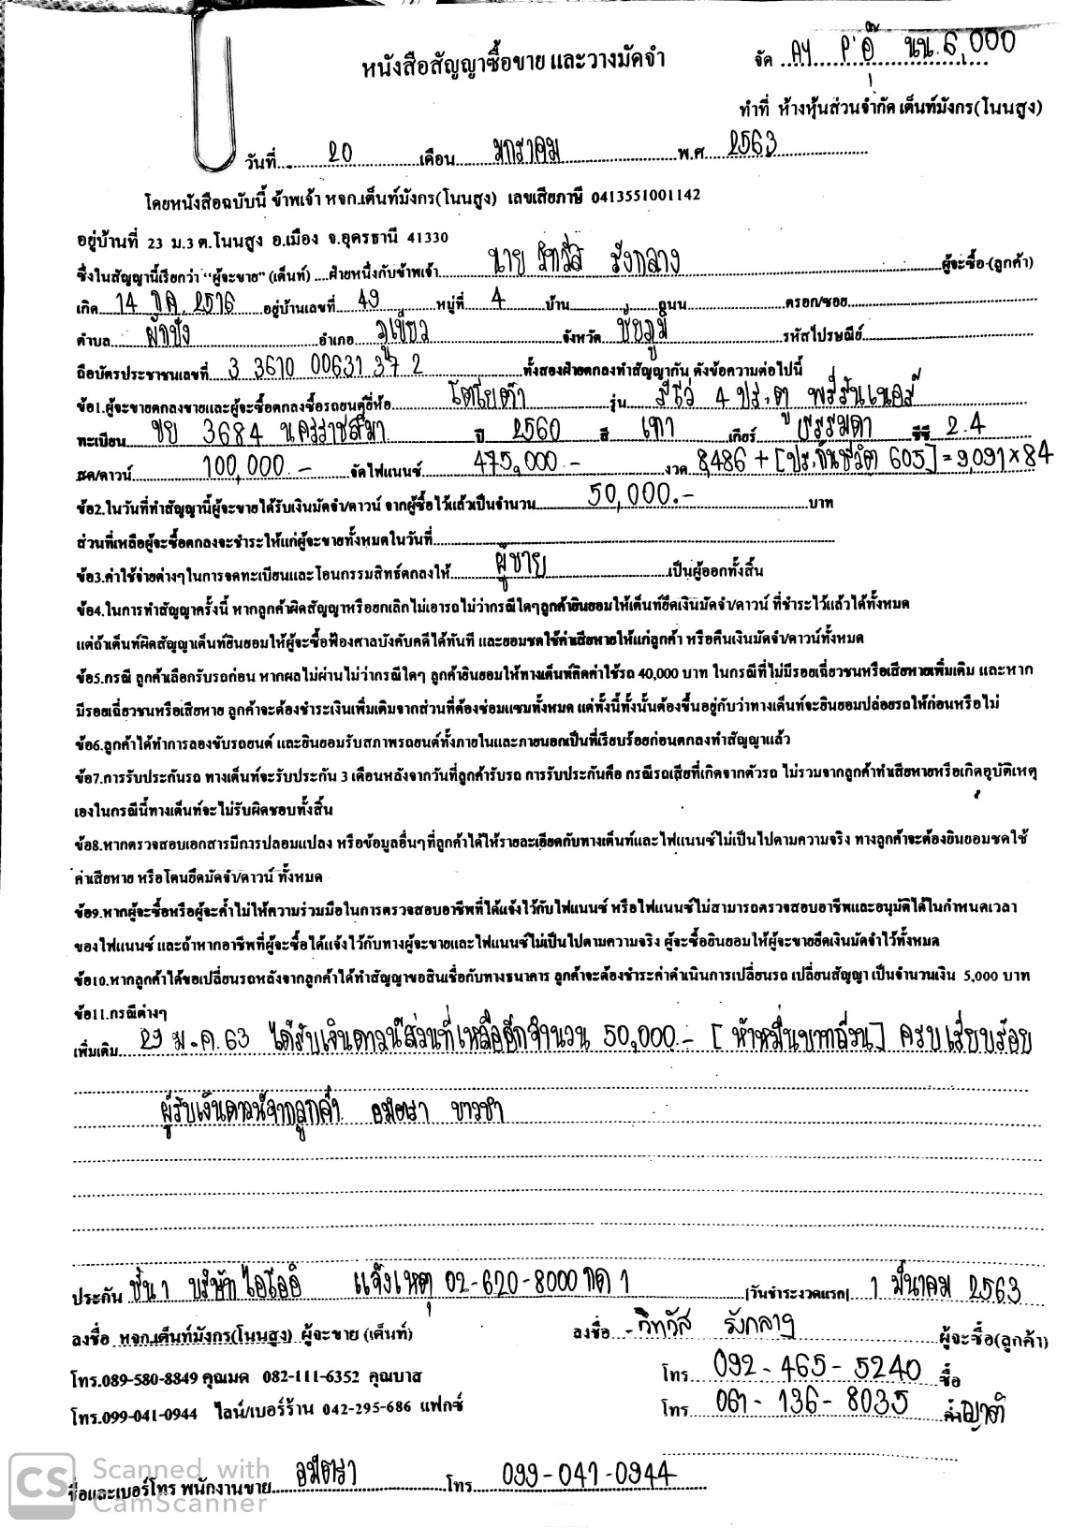 หนังสือสัญญาซื้อขาย และวางมัดจำ
จัด AY P'อุ๊ นน.6,000
ทำที่ ห้างหุ้นส่วนจำกัด เต็นท์มังกร(โนนสูง)
วันที่ 20 เดือน มกราคม พ.ศ 2563
โดยหนังสือฉบับนี้ ข้าพเจ้า หจก.เต็นท์มังกร(โนนสูง) เลขเสียภาษี 0413551001142
อยู่บ้านที่ 23 ม.3 ต.โนนสูง อ.เมือง จ.อุดรธานี 41330
ซึ่งในสัญญานี้เรียกว่า "ผู้จะขาย" (เต็นท์) ....ฝ่ายหนึ่งกับข้าพเจ้า นาย วิทวัส รังกลาง ผู้จะซื้อ-(ลูกค้า)
เกิด 14 ก.ค. 2516 อยู่บ้านเลขที่ 49 หมู่ที่ 4 บ้าน ถนน ตรอก/ซอย
ตำบล ผักปัง อำเภอ ภูเขียว จังหวัด ชัยภูมิ รหัสไปรษณีย์
ถือบัตรประชาชนเลขที่ 3 3610 00631 37 2 ทั้งสองฝ่ายตกลงทำสัญญากัน ดังข้อความต่อไปนี้
ข้อ1.ผู้จะขายตกลงขายและผู้จะซื้อตกลงซื้อรถยนต์ยี่ห้อ โตโยต้า รุ่น รีโว่ 4 ประตู พรีรันเนอร์
ทะเบียน ขย 3684 นครราชสีมา ปี 2560 สี เทา เกียร์ ธรรมดา ซีซี 2.4
สด/ดาวน์ 100,000.- จัดไฟแนนซ์ 475,000.- งวด 8,486 + [ประกันชีวิต 605] = 9,091 × 84
ข้อ2.ในวันที่ทำสัญญานี้ผู้จะขายได้รับเงินมัดจำ/ดาวน์ จากผู้ซื้อไว้แล้วเป็นจำนวน 50,000.- บาท
ส่วนที่เหลือผู้จะซื้อตกลงจะชำระให้แก่ผู้จะขายทั้งหมดในวันที่
ข้อ3.ค่าใช้จ่ายต่างๆในการจดทะเบียนและโอนกรรมสิทธิ์ตกลงให้ ผู้ขาย เป็นผู้ออกทั้งสิ้น
ข้อ4.ในการทำสัญญาครั้งนี้ หากลูกค้าผิดสัญญาหรือยกเลิกไม่เอารถไม่ว่ากรณีใดๆลูกค้ายินยอมให้เต็นท์ยึดเงินมัดจำ/ดาวน์ ที่ชำระไว้แล้วได้ทั้งหมด
แต่ถ้าเต็นท์ผิดสัญญาเต็นท์ยินยอมให้ผู้จะซื้อฟ้องศาลบังคับคดีได้ทันที และยอมชดใช้ค่าเสียหายให้แก่ลูกค้า หรือคืนเงินมัดจำ/ดาวน์ทั้งหมด
ข้อ5.กรณี ลูกค้าเลือกรับรถก่อน หากผลไม่ผ่านไม่ว่ากรณีใดๆ ลูกค้ายินยอมให้ทางเต็นท์คิดค่าใช้รถ 40,000 บาท ในกรณีที่ไม่มีรอยเฉี่ยวชนหรือเสียหายเพิ่มเติม และหาก
มีรอยเฉี่ยวชนหรือเสียหาย ลูกค้าจะต้องชำระเงินเพิ่มเติมจากส่วนที่ต้องซ่อมแซมทั้งหมด แต่ทั้งนี้ทั้งนั้นต้องขึ้นอยู่กับว่าทางเต็นท์จะยินยอมปล่อยรถให้ก่อนหรือไม่
ข้อ6.ลูกค้าได้ทำการลองขับรถยนต์ และยินยอมรับสภาพรถยนต์ทั้งภายในและภายนอกเป็นที่เรียบร้อยก่อนตกลงทำสัญญาแล้ว
ข้อ7.การรับประกันรถ ทางเต็นท์จะรับประกัน 3 เดือนหลังจากวันที่ลูกค้ารับรถ การรับประกันคือ กรณีรถเสียที่เกิดจากตัวรถ ไม่รวมจากลูกค้าทำเสียหายหรือเกิดอุบัติเหตุ
เองในกรณีนี้ทางเต็นท์จะไม่รับผิดชอบทั้งสิ้น
ข้อ8.หากตรวจสอบเอกสารมีการปลอมแปลง หรือข้อมูลอื่นๆที่ลูกค้าได้ให้รายละเอียดกับทางเต็นท์และไฟแนนซ์ไม่เป็นไปตามความจริง ทางลูกค้าจะต้องยินยอมชดใช้
ค่าเสียหาย หรือโดนยึดมัดจำ/ดาวน์ ทั้งหมด
ข้อ9.หากผู้จะซื้อหรือผู้จะค้ำไม่ให้ความร่วมมือในการตรวจสอบอาชีพที่ได้แจ้งไว้กับไฟแนนซ์ หรือไฟแนนซ์ไม่สามารถตรวจสอบอาชีพและอนุมัติได้ในกำหนดเวลา
ของไฟแนนซ์ และถ้าหากอาชีพที่ผู้จะซื้อได้แจ้งไว้กับทางผู้จะขายและไฟแนนซ์ไม่เป็นไปตามความจริง ผู้จะซื้อยินยอมให้ผู้จะขายยึดเงินมัดจำไว้ทั้งหมด
ข้อ10.หากลูกค้าได้ขอเปลี่ยนรถหลังจากลูกค้าได้ทำสัญญาขอสินเชื่อกับทางธนาคาร ลูกค้าจะต้องชำระค่าดำเนินการเปลี่ยนรถ เปลี่ยนสัญญา เป็นจำนวนเงิน 5,000 บาท
ข้อ11.กรณีต่างๆ
เพิ่มเติม 29 ม.ค. 63 ได้รับเงินดาวน์ส่วนที่เหลืออีกจำนวน 50,000.- [ห้าหมื่นบาทถ้วน] ครบเรียบร้อย
ผู้รับเงินดาวน์จากลูกค้า
ประกัน ชั้น 1 บริษัท ไอโออิ แจ้งเหตุ 02-620-8000 กด 1 [วันชำระงวดแรก] 1 มีนาคม 2563
ลงชื่อ หจก.เต็นท์มังกร(โนนสูง) ผู้จะขาย (เต็นท์) ลงชื่อ วิทวัส รังกลาง ผู้จะซื้อ(ลูกค้า)
โทร.089-580-8849 คุณมด 082-111-6352 คุณบาส โทร 092-465-5240 ซื้อ
โทร.099-041-0944 ไลน์/เบอร์ร้าน 042-295-686 แฟกซ์ โทร 061-136-8035 ค้ำญาติ
ชื่อและเบอร์โทร พนักงานขาย โทร 099-041-0944
CS Scanned with
CamScanner